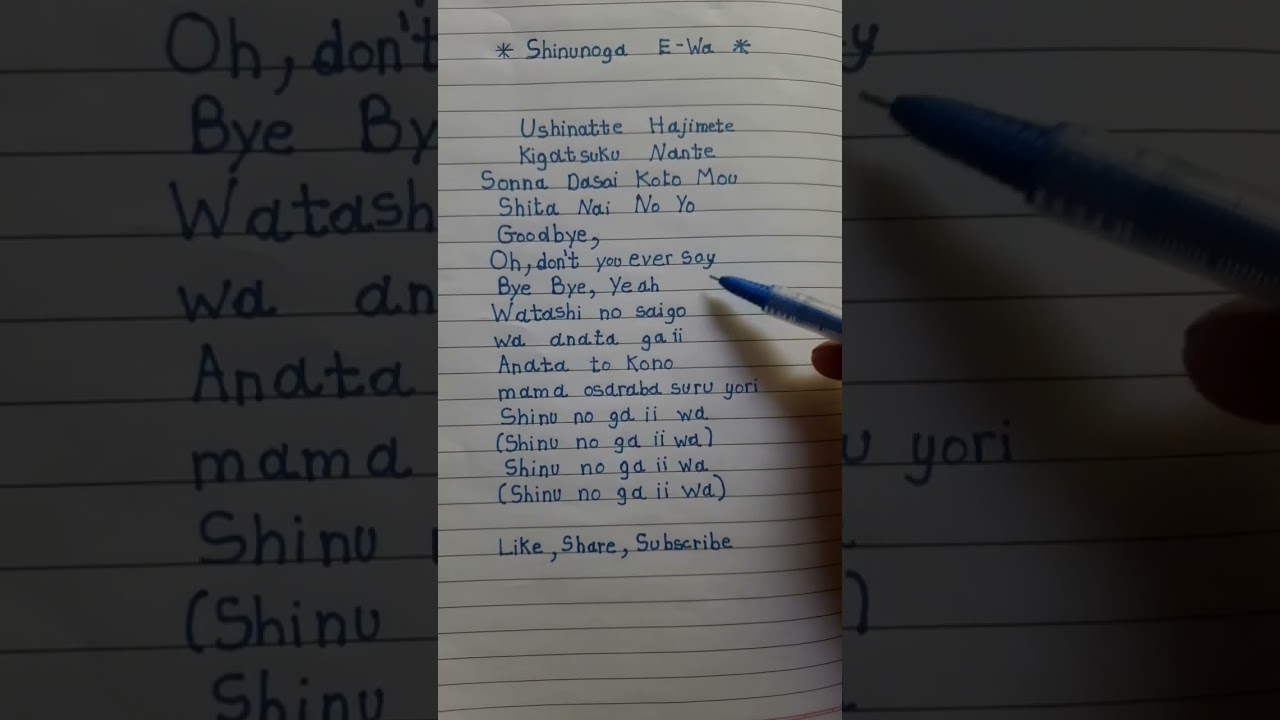 * Shinunoga E-Wa *
Ushinatte Hajimete
Kigatsuku Nante
Sonna Dasai Koto Mou
Shita Nai No Yo
Goodbye,
Oh, don't you ever say
Bye Bye, Yeah
Watashi no saigo
wa anata ga ii
Anata to Kono
mama osaraba suru yori
Shinu no ga ii wa
(Shinu no ga ii wa)
Shinu no ga ii wa
(Shinu no ga ii wa)
Like, Share, Subscribe